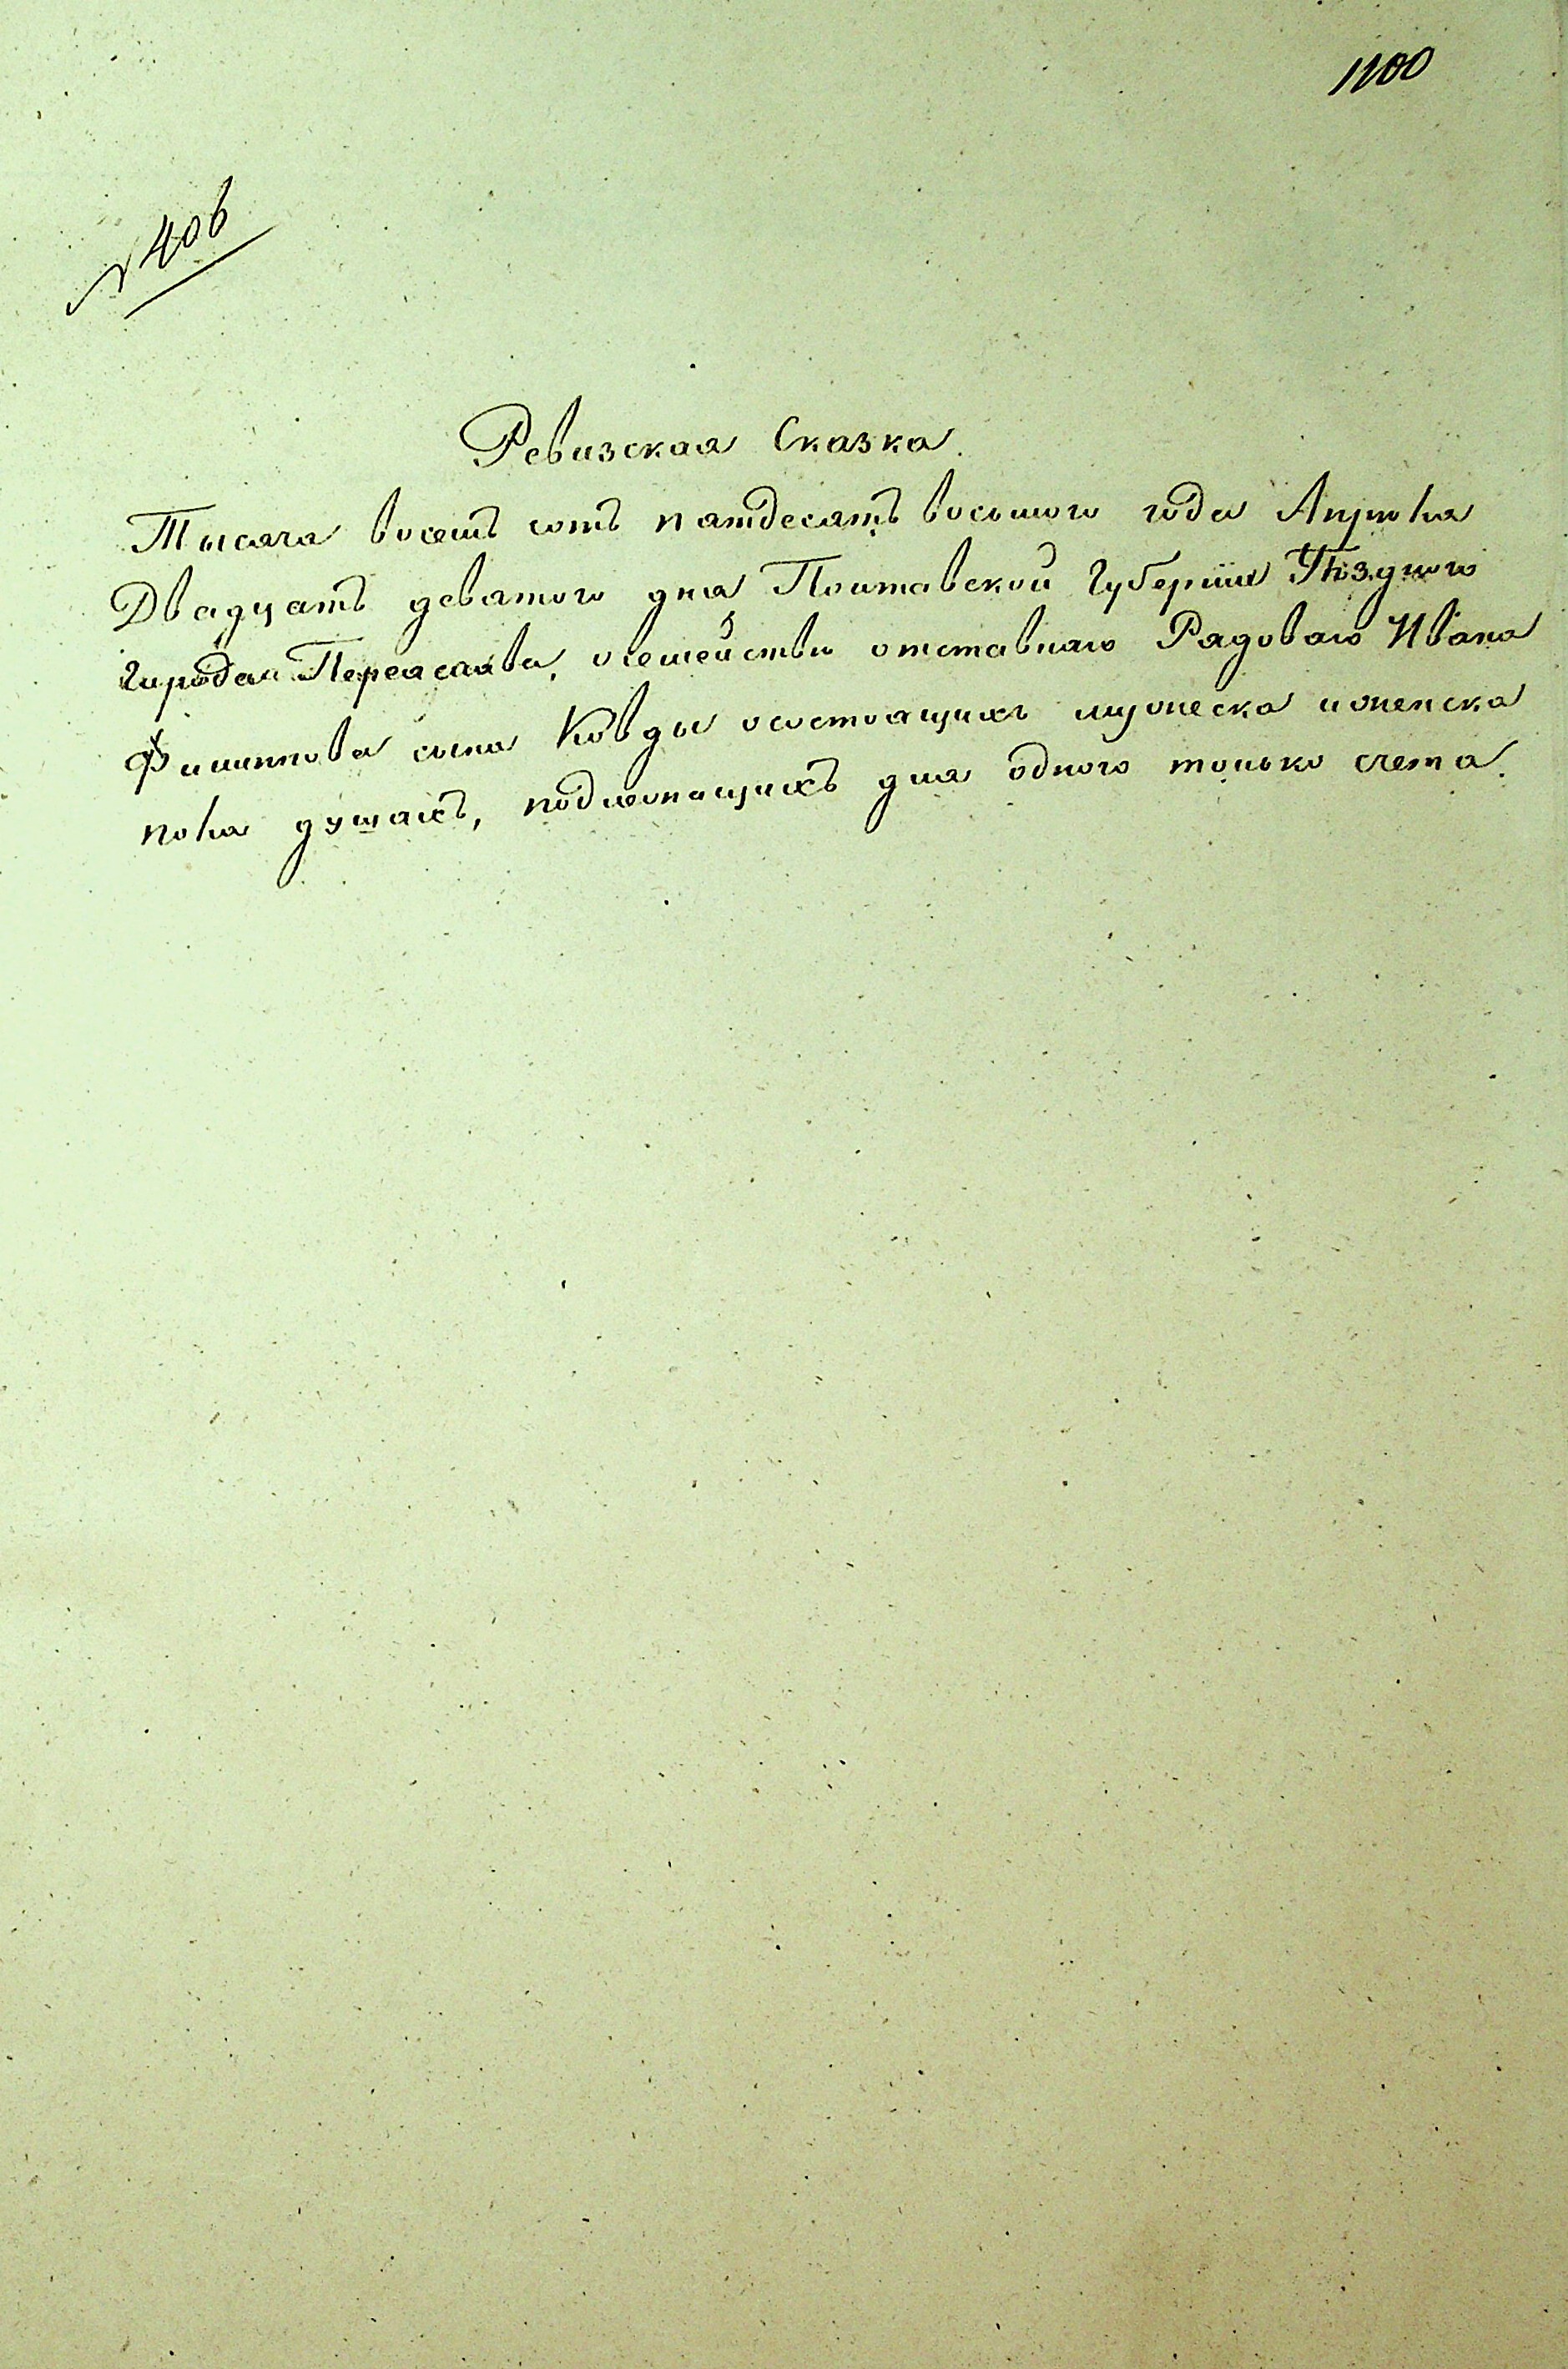 1100
№ 406
Ревизская Сказка.
Тысяча восемь сотъ пятдесятъ восьмого года Апреля
Двадцать девятого дня Полтавской Губерніи Уѣздного
города Переяслава, осемействѣ отставнаго Рядоваго Ивана
Филиппова сына Ковды осостоящихъ мужеска иженска
пола душахъ, подлежащихъ для одного только счета.